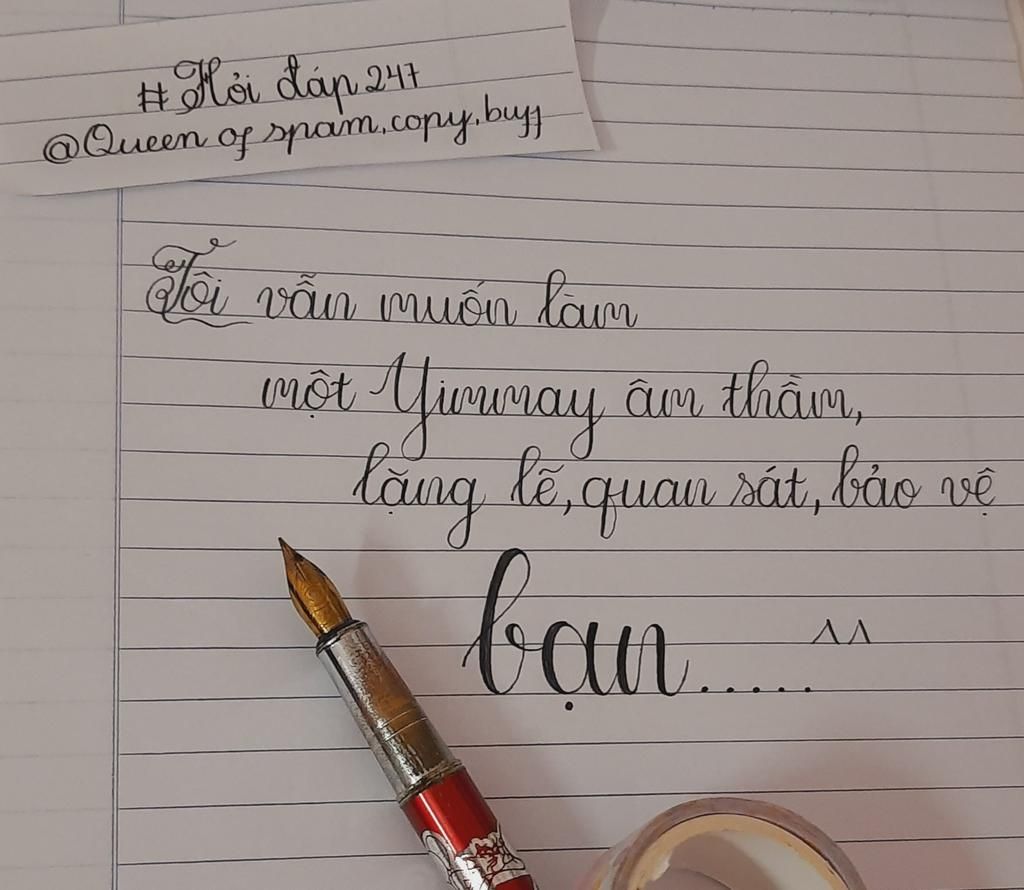 # Hỏi đáp 247
@Queen of spam.copy.buff
Tôi vẫn muốn làm
một Yimmay âm thầm,
lặng lẽ, quan sát, bảo vệ
bạn..... ^^